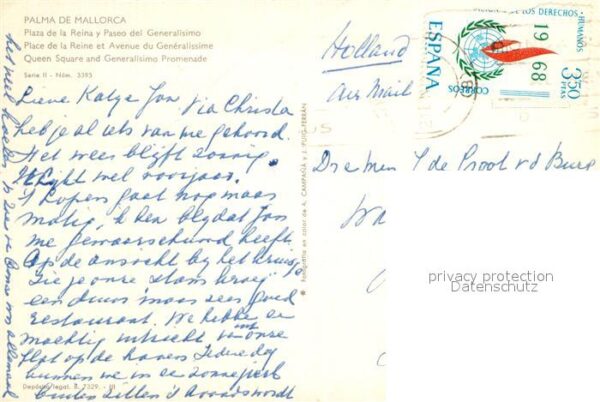 PALMA DE MALLORCA
Plaza de la Reina y Paseo del Generalísimo
Place de la Reine et Avenue du Genéralissime
Queen Square and Generalísimo Promenade
Serie II - Núm. 3393
Lieve Katja Jon, Via Christa
heb je al iets van me gehoord.
Het weer blijft zonnig
lijkt wel voorjaar.
't Lopen gaat nog maar
matig, ik ben blij dat Jon
me gewaarschuwd heeft.
Op de ansicht bij het kruisje
zie je onze stam kroeg
een duur maar zeer goed
restaurant. We hebben een
machtig uitzicht van onze
flat op de haven. Iedere dag
kunnen we in een zonnetje
buiten zitten 's avonds wordt
het heel
allemaal
Depósito legal B. 7329 - III
Fotografía en color de A. CAMPAÑÁ y J. PUIG-FERRÁN
Holland
Air Mail
ESPAÑA
DE LOS DERECHOS
HUMANOS
1968
3,50
PTAS
CORREOS
de Proot v d Burg
privacy protection
Datenschutz